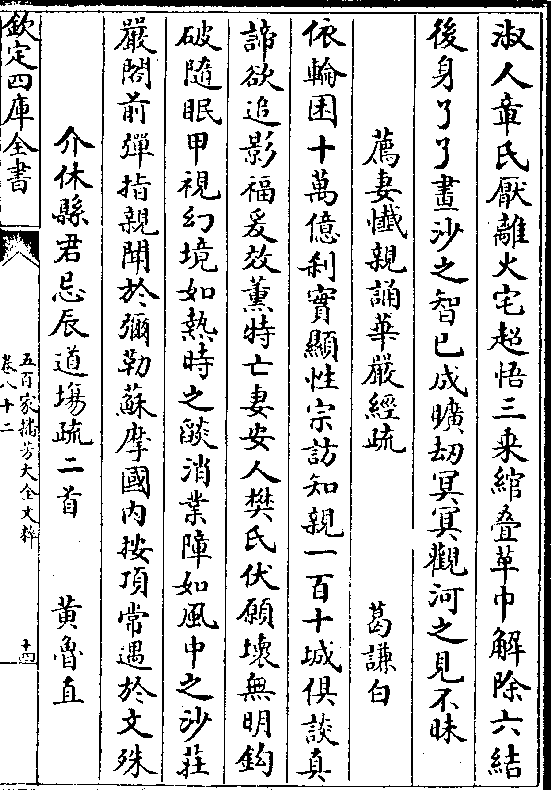 淑人章氏厭離火宅超悟三乗綰疊革巾解除六結
後身了了畫沙之智已成曠刼冥冥觀河之見不昧
薦妻懴親誦華嚴經疏 葛謙白
依輪囷十萬億刹實顯性宗訪知親一百十城俱談真
諦欲追影福爰效薰特亡妻安人樊氏伏願壞無明鈎
破隨眠甲視幻境如熱時之燄消業障如風中之沙莊
嚴閣前彈指親聞於彌勒蘇摩國内按頂常遇於文殊
介休縣君忌辰道塲疏二首 黄魯直
欽定四庫全書
五百家播芳大全文粹
卷八十二
十四